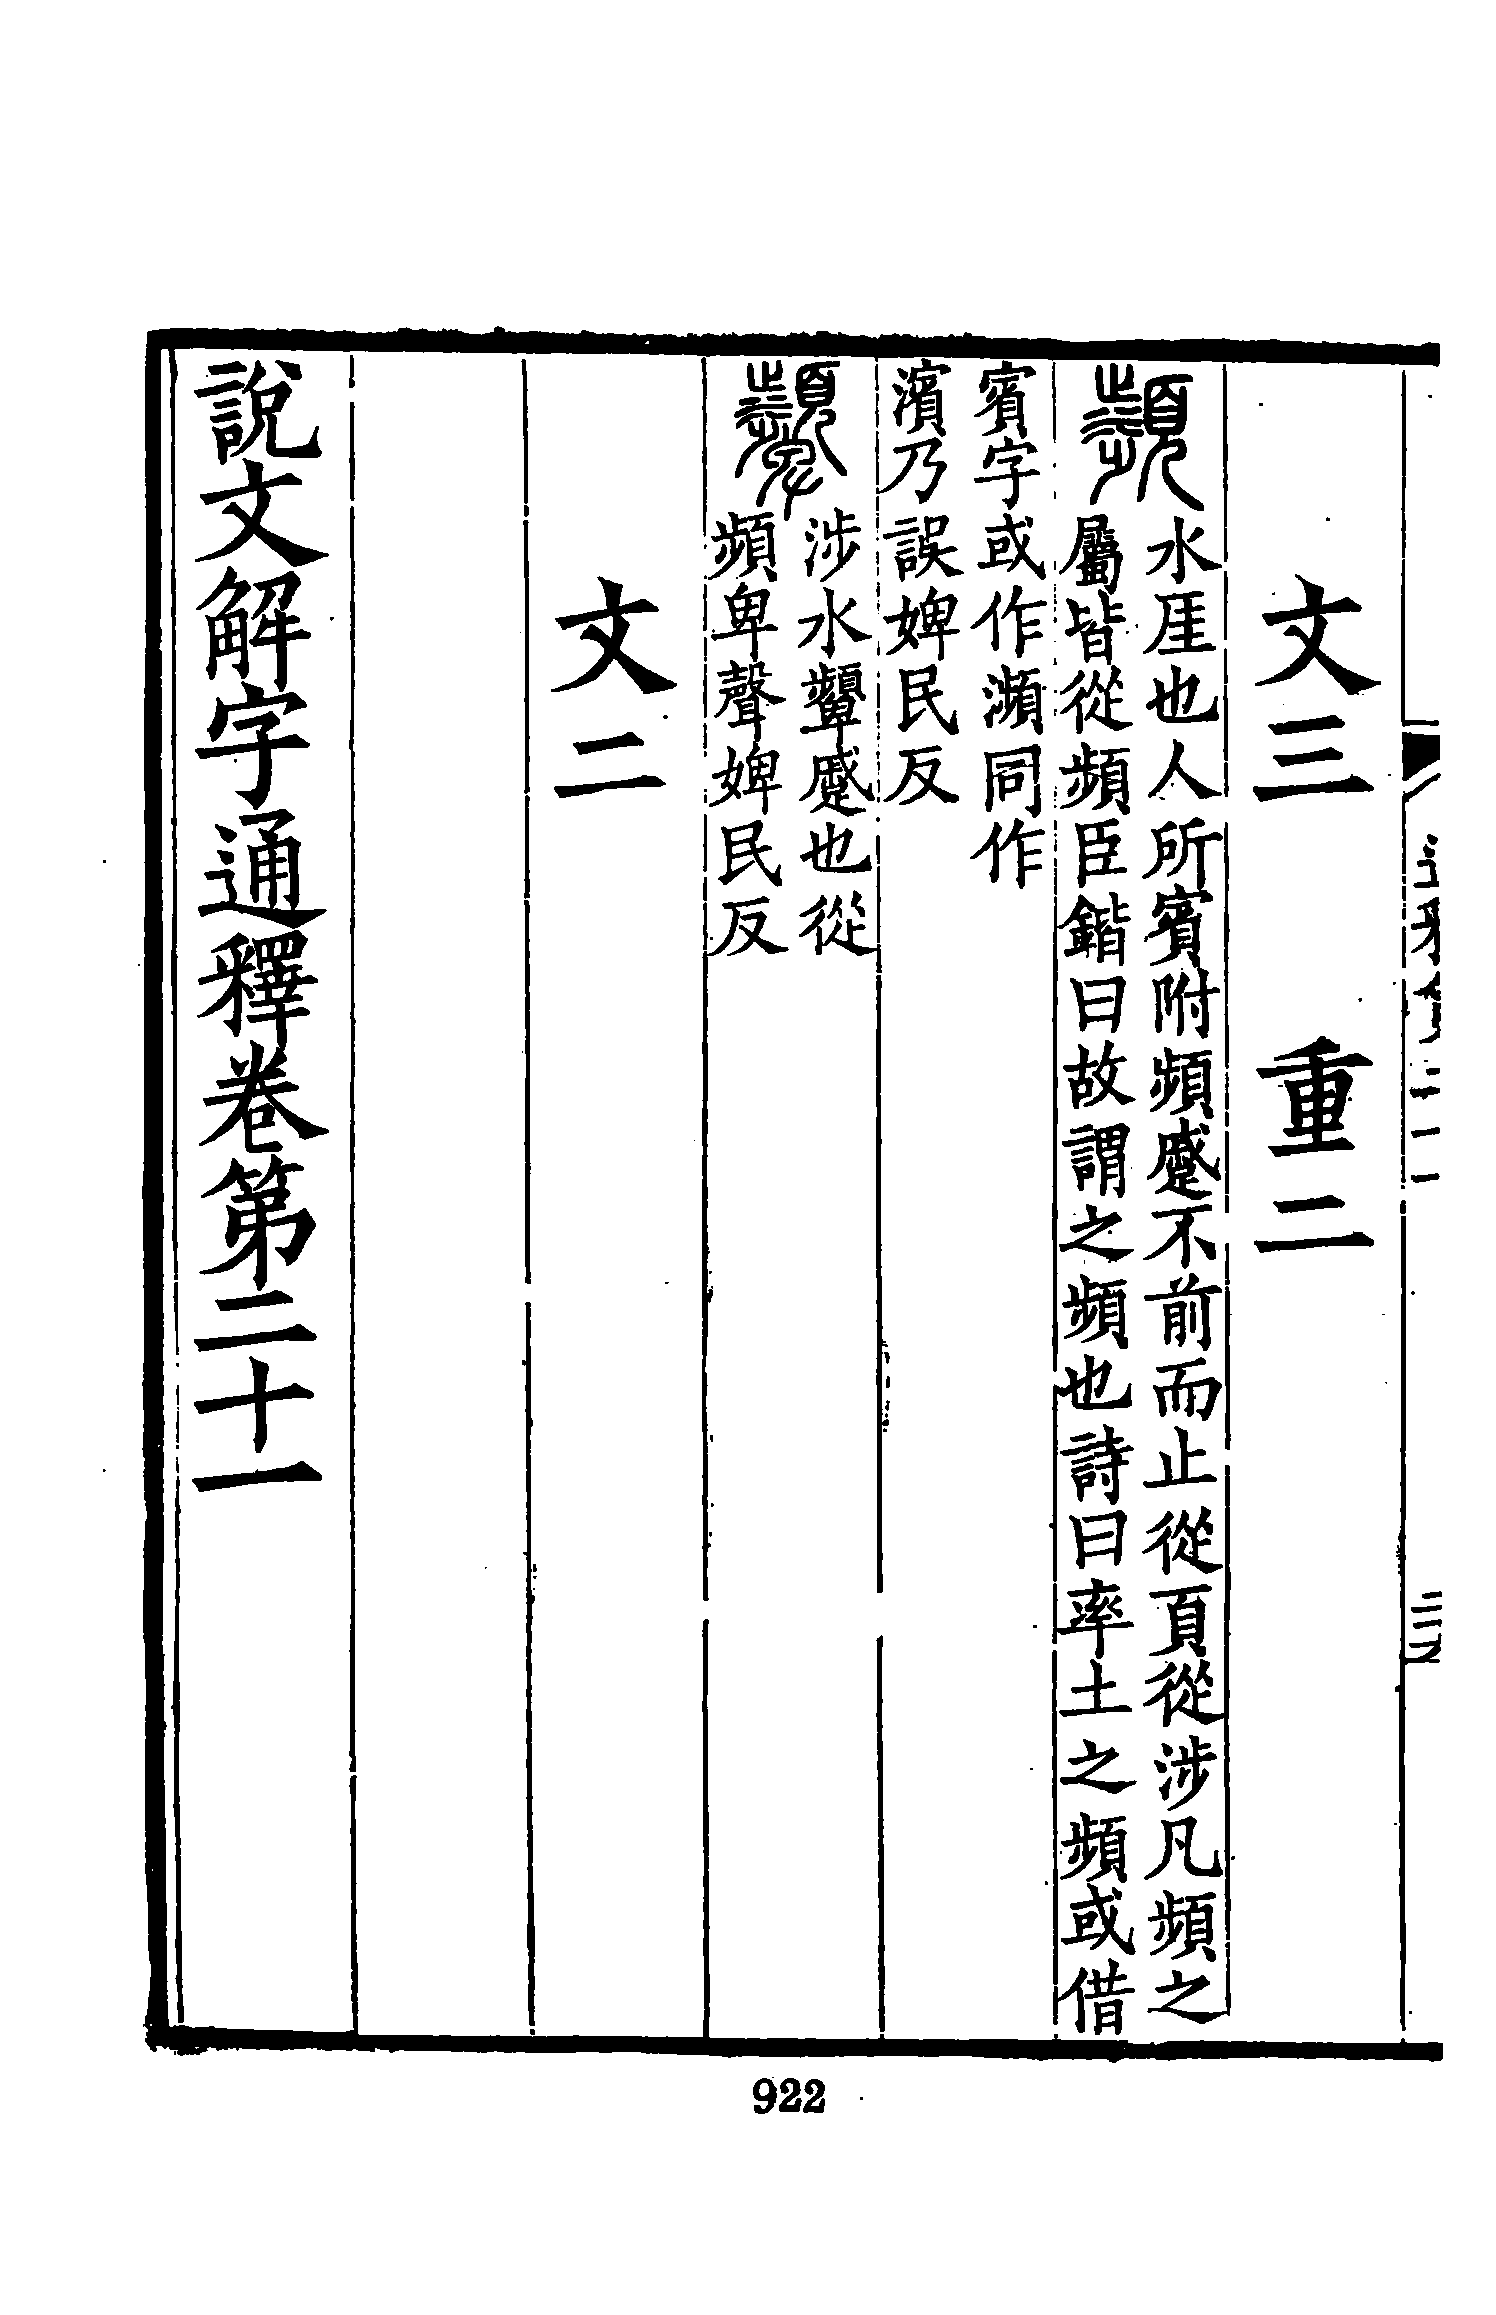 文三　重二
瀕
水厓也人所賓附頻蹙不前而止從頁從涉凡頻之
屬皆從頻臣鍇曰故謂之頻也詩曰率土之頻或借
賓字或作瀕同作
濱乃誤婢民反
顰
涉水顰蹙也從
頻卑聲婢民反
文二
說文解字通釋卷第二十一
922